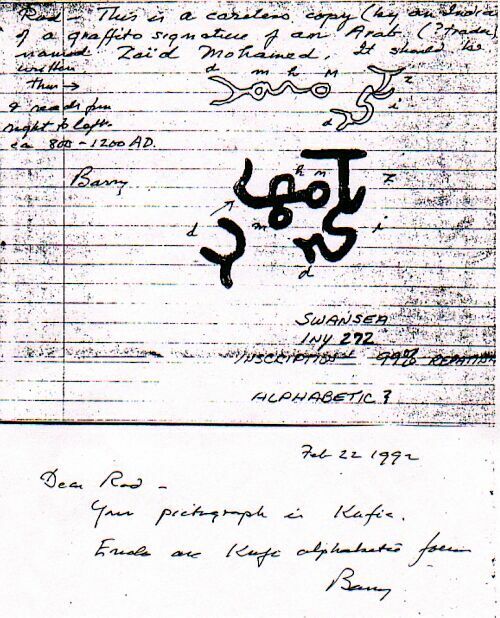 Rod - This is a careless copy (by an
of a graffito signature of an Arab (? trader)
named Zaid Mohamed. It should be
written
thus →
& reads from
right to left.
ca 800-1200 AD.
d m h M
z
i
d
Barry
h m z
d m i
d
SWANSEA
INY 272
INSCRIPTION 99%
ALPHABETIC?
Feb 22 1992
Dear Rod -
Your pictograph is Kufic.
Kufi alphabetic form
Barry